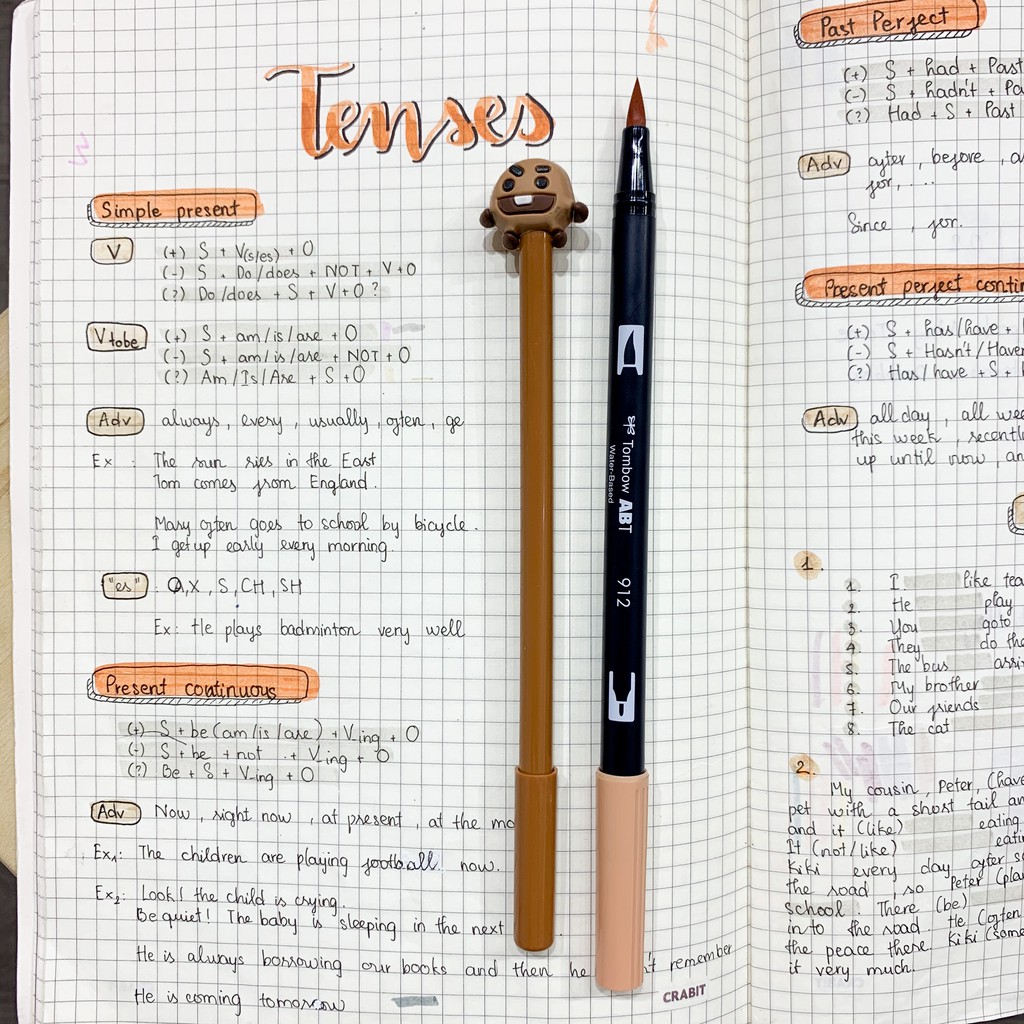 Tenses
Simple present
V
(+) S + V(s/es) + O
(-) S + Do/does + NOT + V + O
(?) Do/does + S + V + O ?
Vtobe
(+) S + am/is/are + O
(-) S + am/is/are + NOT + O
(?) Am/Is/Are + S + O
Adv always, every, usually, often, ge
Ex : The sun ries in the East
Tom comes from England.
Mary often goes to school by bicycle.
I get up early every morning.
"es" : O, X, S, CH, SH
Ex: He plays badminton very well
Present continuous
(+) S + be (am/is/are) + Ving + O
(-) S + be + not + Ving + O
(?) Be + S + Ving + O
Adv Now, right now, at present, at the mo
Ex1: The children are playing football now.
Ex2: Look! the child is crying.
Be quiet! The baby is sleeping in the next
He is always borrowing our books and then he 't remember
He is coming tomorrow
CRABIT
Tombow ABT
Water-Based
912
Past Perfect
(+) S + had + Past
(-) S + hadn't + Pa
(?) Had + S + Past
Adv after, before,
for, ....
Since, for.
Present perfect contin
(+) S + has/have +
(-) S + Hasn't/Haven
(?) Has/have + S +
Adv all day, all wee
this week, recentl
up until now, an
1.
1. I like tea
2. He play
3. You goto
4. They do the
5. The bus arri
6. My brother
7. Our friends
8. The cat
2.
My cousin, Peter, (have
pet with a short tail an
and it (like) eating
It (not/like) eati
Kiki every day after s
the road, so Peter (pla
school. There (be)
into the road. He (often
the peace there. Kiki (some
it very much.